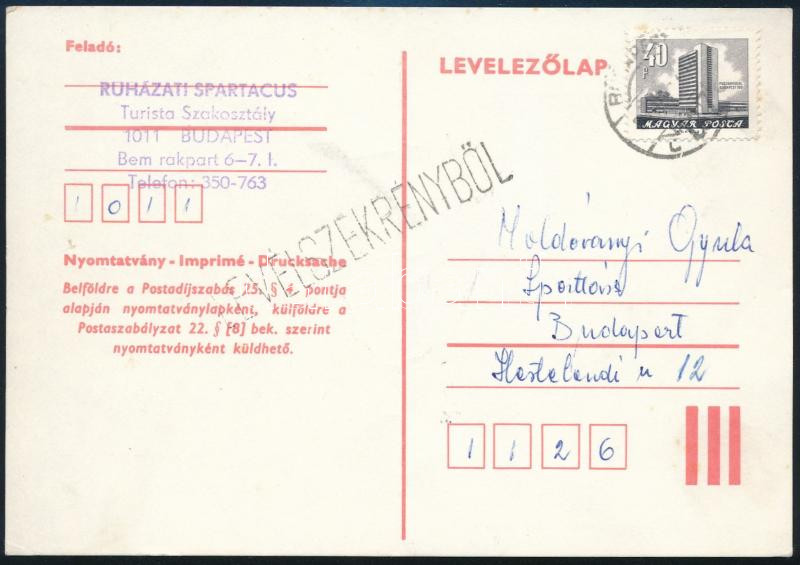 Feladó:
RUHÁZATI SPARTACUS
Turista Szakosztály
1011 BUDAPEST
Bem rakpart 6–7. I.
Telefon: 350-763
1 0 1 1
Nyomtatvány - Imprimé - Drucksache
Belföldre a Postadíjszabás 25. § 4. pontja
alapján nyomtatványlapként, külföldre a
Postaszabályzat 22. § [8] bek. szerint
nyomtatványként küldhető.
LEVÉLSZEKRÉNYBŐL
LEVELEZŐLAP
40
MAGYAR POSTA
Moldoványi Gyula
Budapest
12
1 1 2 6